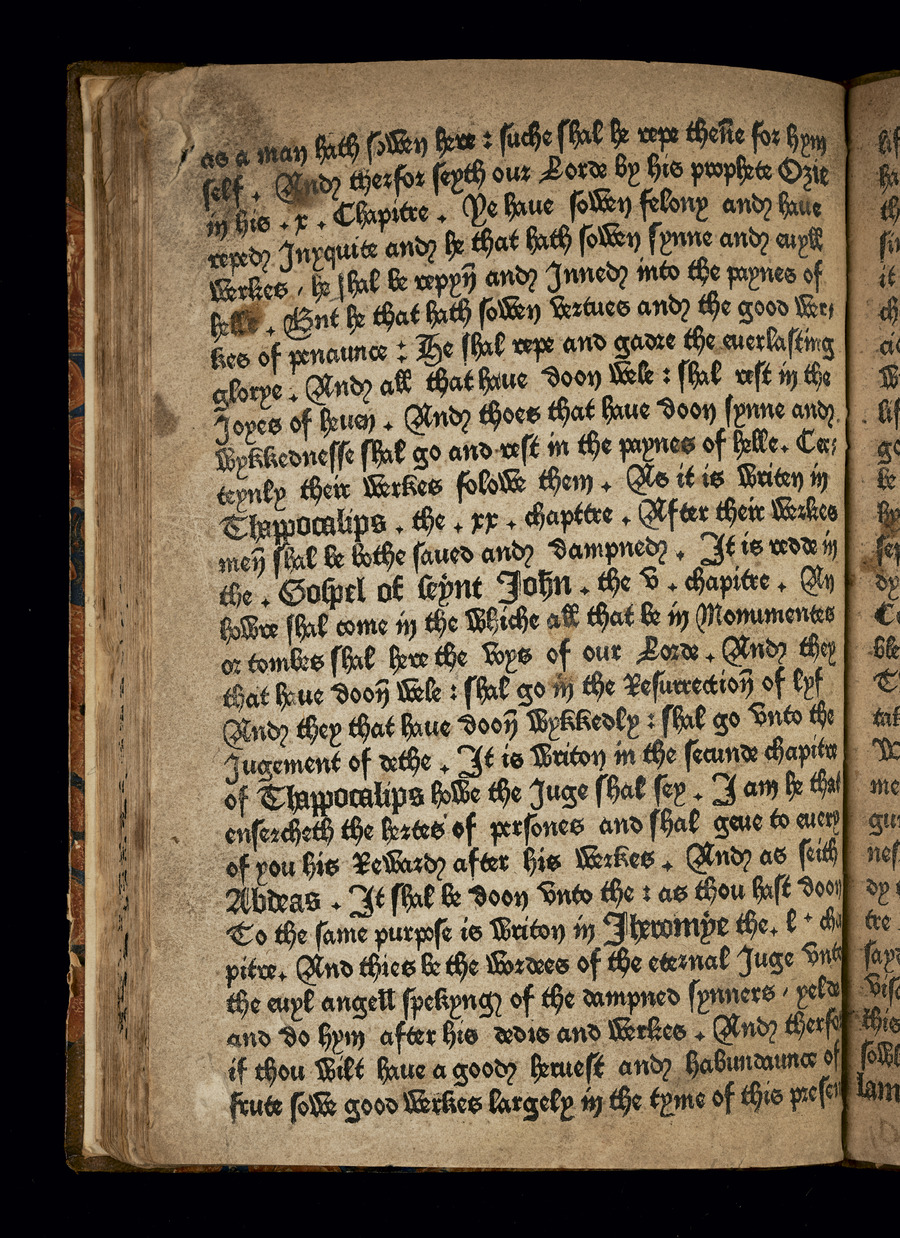 as a man hath sowen here : suche shal he repe theñe for hym
self . And therfor seyth our Lorde by his prophete Ozie
in his . x . Chapitre . Ye haue sowen felony and haue
reped Inyquite and he that hath sowen synne and euyll
werkes , he shal be repyñ and Inned into the paynes of
helle . But he that hath sowen vertues and the good wer,
kes of penaunce : He shal repe and gadre the euerlasting
glorye . And all that haue doon wele : shal rest in the
Joyes of heuen . And thoes that haue doon synne and
wykkednesse shal go and rest in the paynes of helle . Cer,
teynly their werkes folowe them . As it is writen in
Thappocalips . the . xx . chapttre . After their werkes
meñ shal be bothe saued and dampned . It is redde in
the . Gospel of seynt John . the v . chapitre . An
howre shal come in the whiche all that be in Monumentes
or tombes shal here the voys of our Lorde . And they
that haue dooñ wele : shal go in the Resurrectioñ of lyf
And they that haue dooñ wykkedly : shal go vnto the
Jugement of dethe . It is writon in the secunde chapitre
of Thappocalips howe the Juge shal sey . I am he that
ensercheth the hertes of persones and shal geue to euery
of you his Reward after his werkes . And as seith
Abdeas . It shal be doon vnto the : as thou hast doon
To the same purpose is writon in Jheromye the . l . cha
pitre . And thies be the wordees of the eternal Juge vnto
the euyl angell spekyng of the dampned synners , yelde
and do hym after his dedis and werkes . And therfo
if thou wilt haue a good heruest and habundaunce of
frute sowe good werkes largely in the tyme of this presen